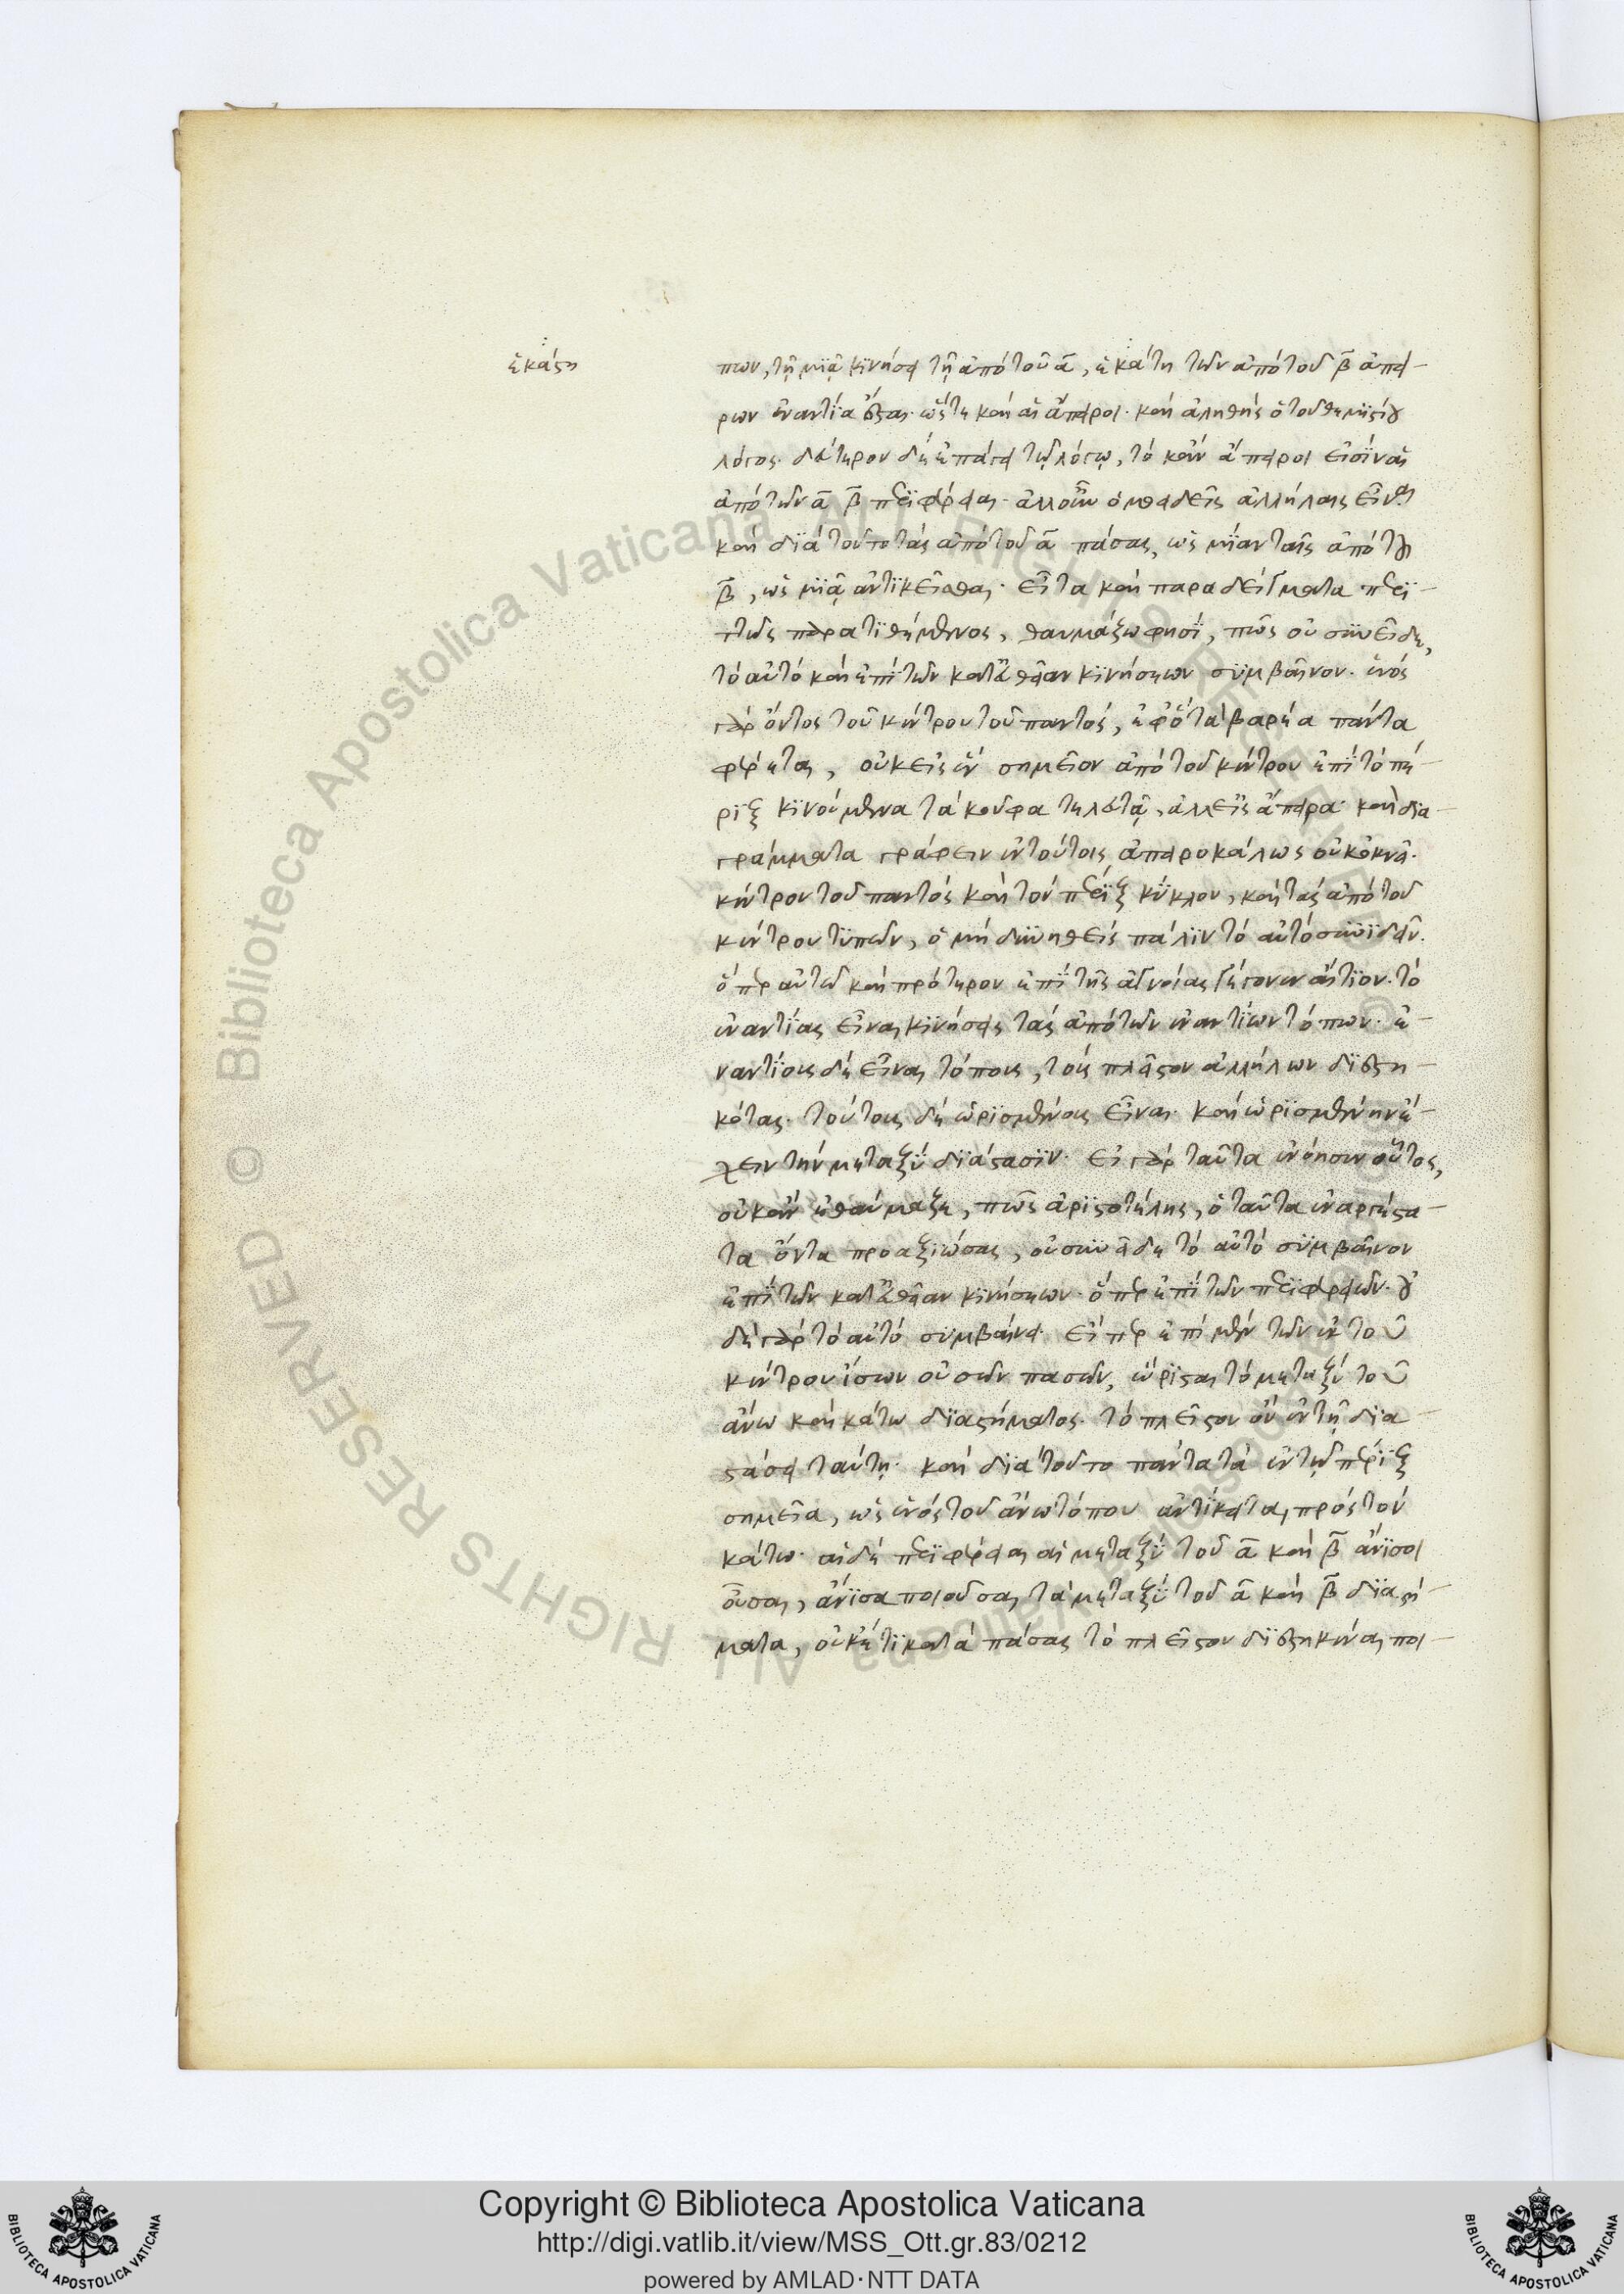 ἑκάστη
πων, τῇ μιᾷ κινήσει τῇ ἀπὸ τοῦ α, ἑκάτη τῶν ἀπὸ τοῦ β ἀπεί-
ρων ἐναντία ἔσται. ὥστε καὶ αἱ ἄπειροι. καὶ ἀληθὴς ὁ τοῦ θεμιστίου
λόγος. δεύτερον δὲ ἐπάγει τῷ λόγῳ, τὸ κἂν ἄπειροι εἰσὶν αἱ
ἀπὸ τῶν α β περιφέρειαι. ἀλλ' οὖν ὁμοειδεῖς ἀλλήλαις εἶναι
καὶ διὰ τοῦτο τὰς ἀπὸ τοῦ α πάσας, ὡς μίαν ταῖς ἀπὸ τοῦ
β, ὡς μιᾷ ἀντικεῖσθαι. εἶτα καὶ παραδείγματα περὶ
τῆς παρατιθέμενος, θαυμάζω φησὶ, πῶς οὐ συνεῖδε,
τὸ αὐτὸ καὶ ἐπὶ τῶν κατ' εὐθεῖαν κινήσεων συμβαῖνον. ἑνὸς
γὰρ ὄντος τοῦ κέντρου τοῦ παντός, ἐφ' ὃ τὰ βαρέα πάντα
φέρεται, οὐκ εἰς ἓν σημεῖον ἀπὸ τοῦ κέντρου ἐπὶ τὸ πέ-
ριξ κινούμενα τὰ κοῦφα τελευτᾷ, ἀλλ' εἰς ἄπειρα. καὶ δια-
γράμματα γράφειν ἐν τούτοις ἀπειροκάλως οὐκ ὀκνεῖ.
κέντρον τοῦ παντὸς καὶ τὸν πέριξ κύκλον, καὶ τὰς ἀπὸ τοῦ
κέντρου τυπῶν, ὁ μὴ δυνηθεὶς πάλιν τὸ αὐτὸ συνιδεῖν.
ὅπερ αὐτῷ καὶ πρότερον ἐπὶ τῆς ἀγνοίας γέγονεν αἴτιον. τὸ
ἐναντίας εἶναι κινήσεις τὰς ἀπὸ τῶν ἐναντίων τόπων. ἐ-
ναντίους δὲ εἶναι τόπους, τοὺς πλεῖστον ἀλλήλων διεστη-
κότας. τούτους δὲ ὡρισμένους εἶναι. καὶ ὡρισμένην ἔ-
χειν τὴν μεταξὺ διάστασιν. εἰ γὰρ ταῦτα ἐνόησεν οὗτος,
οὐκ ἂν ἐθαύμαζε, πῶς ἀριστοτέλης, ὁ ταῦτα ἐναργέστα-
τα ὄντα προαξιώσας, οὐ συνεῖδε τὸ αὐτὸ συμβαῖνον
ἐπὶ τῶν κατ' εὐθεῖαν κινήσεων. ὅπερ ἐπὶ τῶν περιφερειῶν. οὐ
δὲ γὰρ τὸ αὐτὸ συμβαίνει. εἴπερ ἐπὶ μὲν τῶν ἐκ τοῦ
κέντρου ἴσων οὐσῶν πασῶν, ὥρισται τὸ μεταξὺ τοῦ
ἄνω καὶ κάτω διαστήματος. τὸ πλεῖστον οὖν ἐν τῇ δια
στάσει ταύτῃ. καὶ διὰ τοῦτο πάντα τὰ ἐν τῷ πέριξ
σημεῖα, ὡς ἑνὸς τοῦ ἄνω τόπου ἀντίκειται πρὸς τὸν
κάτω. αἱ δὲ περιφέρειαι αἱ μεταξὺ τοῦ α καὶ β ἄνισοι
οὖσαι, ἄνισα ποιοῦσαι τὰ μεταξὺ τοῦ α καὶ β διαστή-
ματα, οὐκέτι κατὰ πάσας τὸ πλεῖστον διεστηκέναι ποι-
Copyright © Biblioteca Apostolica Vaticana
http://digi.vatlib.it/view/MSS_Ott.gr.83/0212
powered by AMLAD·NTT DATA